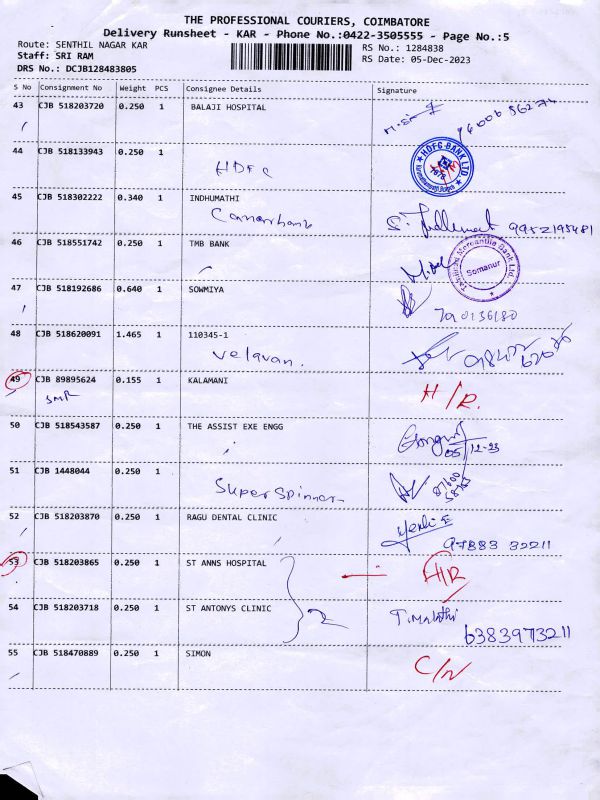 THE PROFESSIONAL COURIERS, COIMBATORE
Delivery Runsheet - KAR - Phone No.:0422-3505555 - Page No.:5
Route: SENTHIL NAGAR KAR RS No.: 1284838
Staff: SRI RAM RS Date: 05-Dec-2023
DRS No.: DCJB128483805
S No Consignment No Weight PCS Consignee Details Signature
43 CJB 518203720 0.250 1 BALAJI HOSPITAL
44 CJB 518133943 0.250 1
HDFC
HDFC BANK LTD
45 CJB 518302222 0.340 1 INDHUMATHI
Canarabank 9952195481
46 CJB 518551742 0.250 1 TMB BANK
Tamilnad Mercantile Bank Ltd. Somanur
47 CJB 518192686 0.640 1 SOWMIYA
48 CJB 518620091 1.465 1 110345-1
Velavan.
49 CJB 89895624 0.155 1 KALAMANI H/R.
50 CJB 518543587 0.250 1 THE ASSIST EXE ENGG
05/12-23
51 CJB 1448044 0.250 1
Super Spinner
52 CJB 518203870 0.250 1 RAGU DENTAL CLINIC
97883 32211
53 CJB 518203865 0.250 1 ST ANNS HOSPITAL H/R
54 CJB 518203718 0.250 1 ST ANTONYS CLINIC T. Malathi
6383973211
55 CJB 518470889 0.250 1 SIMON C/N